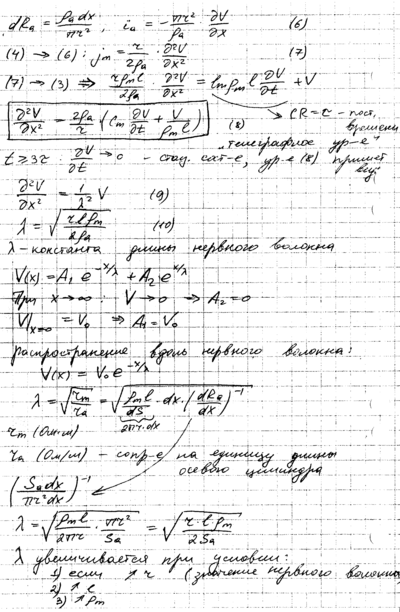 dRₐ = ρₐdx/πr², iₐ = -πr²/ρₐ ∂V/∂x (6)
(4) → (6): jₘ = r/2ρₐ · ∂²V/∂x² (7)
(7) → (3) ⇒ rρₘl/2ρₐ · ∂²V/∂x² = lcₘρₘl ∂V/∂t + V
CR = τ - пост. времени
∂²V/∂x² = 2ρₐ/r (Cₘ ∂V/∂t + V/ρₘl) (8)
"телеграфное ур-е"
t ≥ 3τ : ∂V/∂t → 0 - стац. сост-е, ур-е (8) примет вид
∂²V/∂x² = 1/λ² V (9)
λ = √(rlρₘ/2ρₐ) (10)
λ - константа длины нервного волокна
V(x) = A₁ e^(-x/λ) + A₂ e^(x/λ)
При x → ∞ : V → 0 → A₂ = 0
V|ₓ₌₀ = V₀ ⇒ A₁ = V₀
Распространение вдоль нервного волокна:
V(x) = V₀e^(-x/λ)
λ = √(rₘ/rₐ) = √(ρₘl/dS · dx · (dRₐ/dx)⁻¹)
2πr·dx
rₘ (Ом·м)
rₐ (Ом/м) - сопр-е на единицу длины
осевого цилиндра
(Sₐdx/πr²dx)⁻¹
λ = √(ρₘl/2πr · πr²/Sₐ) = √(r·l·ρₘ/2Sₐ)
λ увеличивается при условии:
1) если ↑ r (значение нервного волокна
2) ↑ l
3) ↑ ρₘ